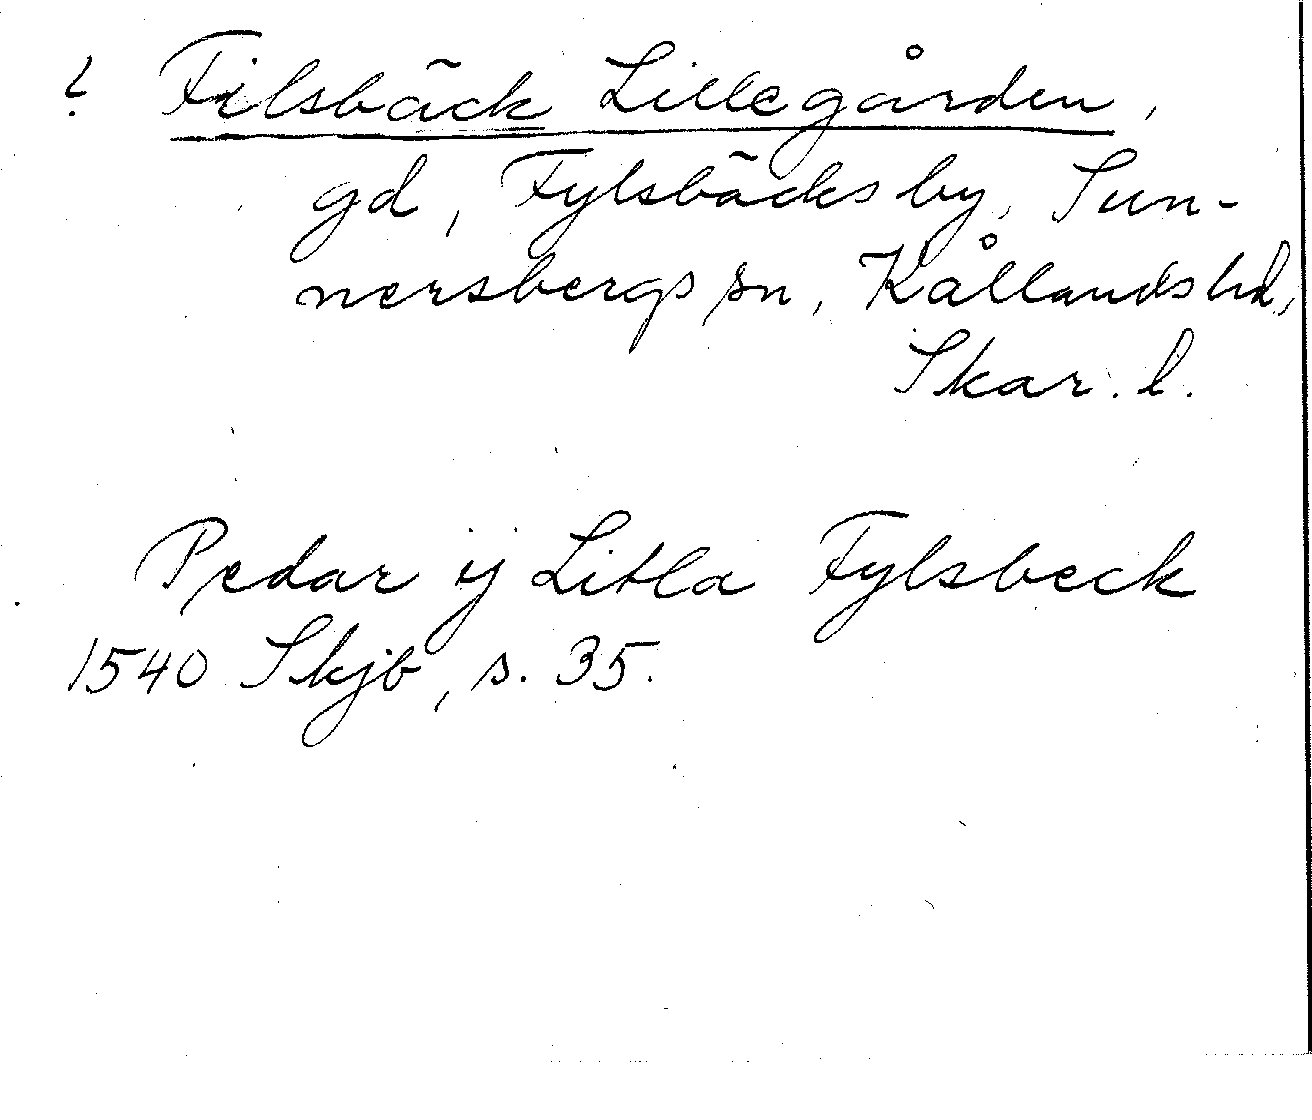 ? Filsbäck Lillegården,
gd, Fylsbäcks by, Sun-
nersbergs sn, Kållands hd,
Skar. l.
Pedar ij Litla Fylsbeck
1540 Skjb, s. 35.